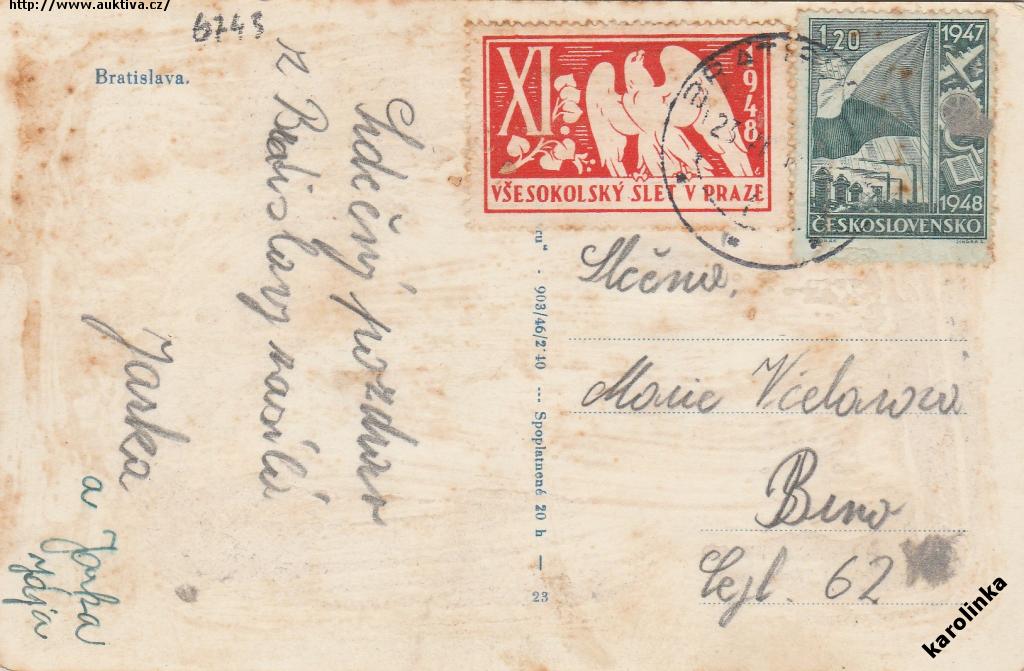 http://www.auktiva.cz/
6743
Bratislava.
Srdečný pozdrav
z Bratislavy zasílá
Jarka
a Jarka
XI.
1948
VŠESOKOLSKÝ SLET V PRAZE
1.20
1947
1948
ČESKOSLOVENSKO
ru" - 903/46/2'40 --- Spoplatnené 20 h — 23
Slečna,
Marie
Brno
Cejl. 62
karolinka